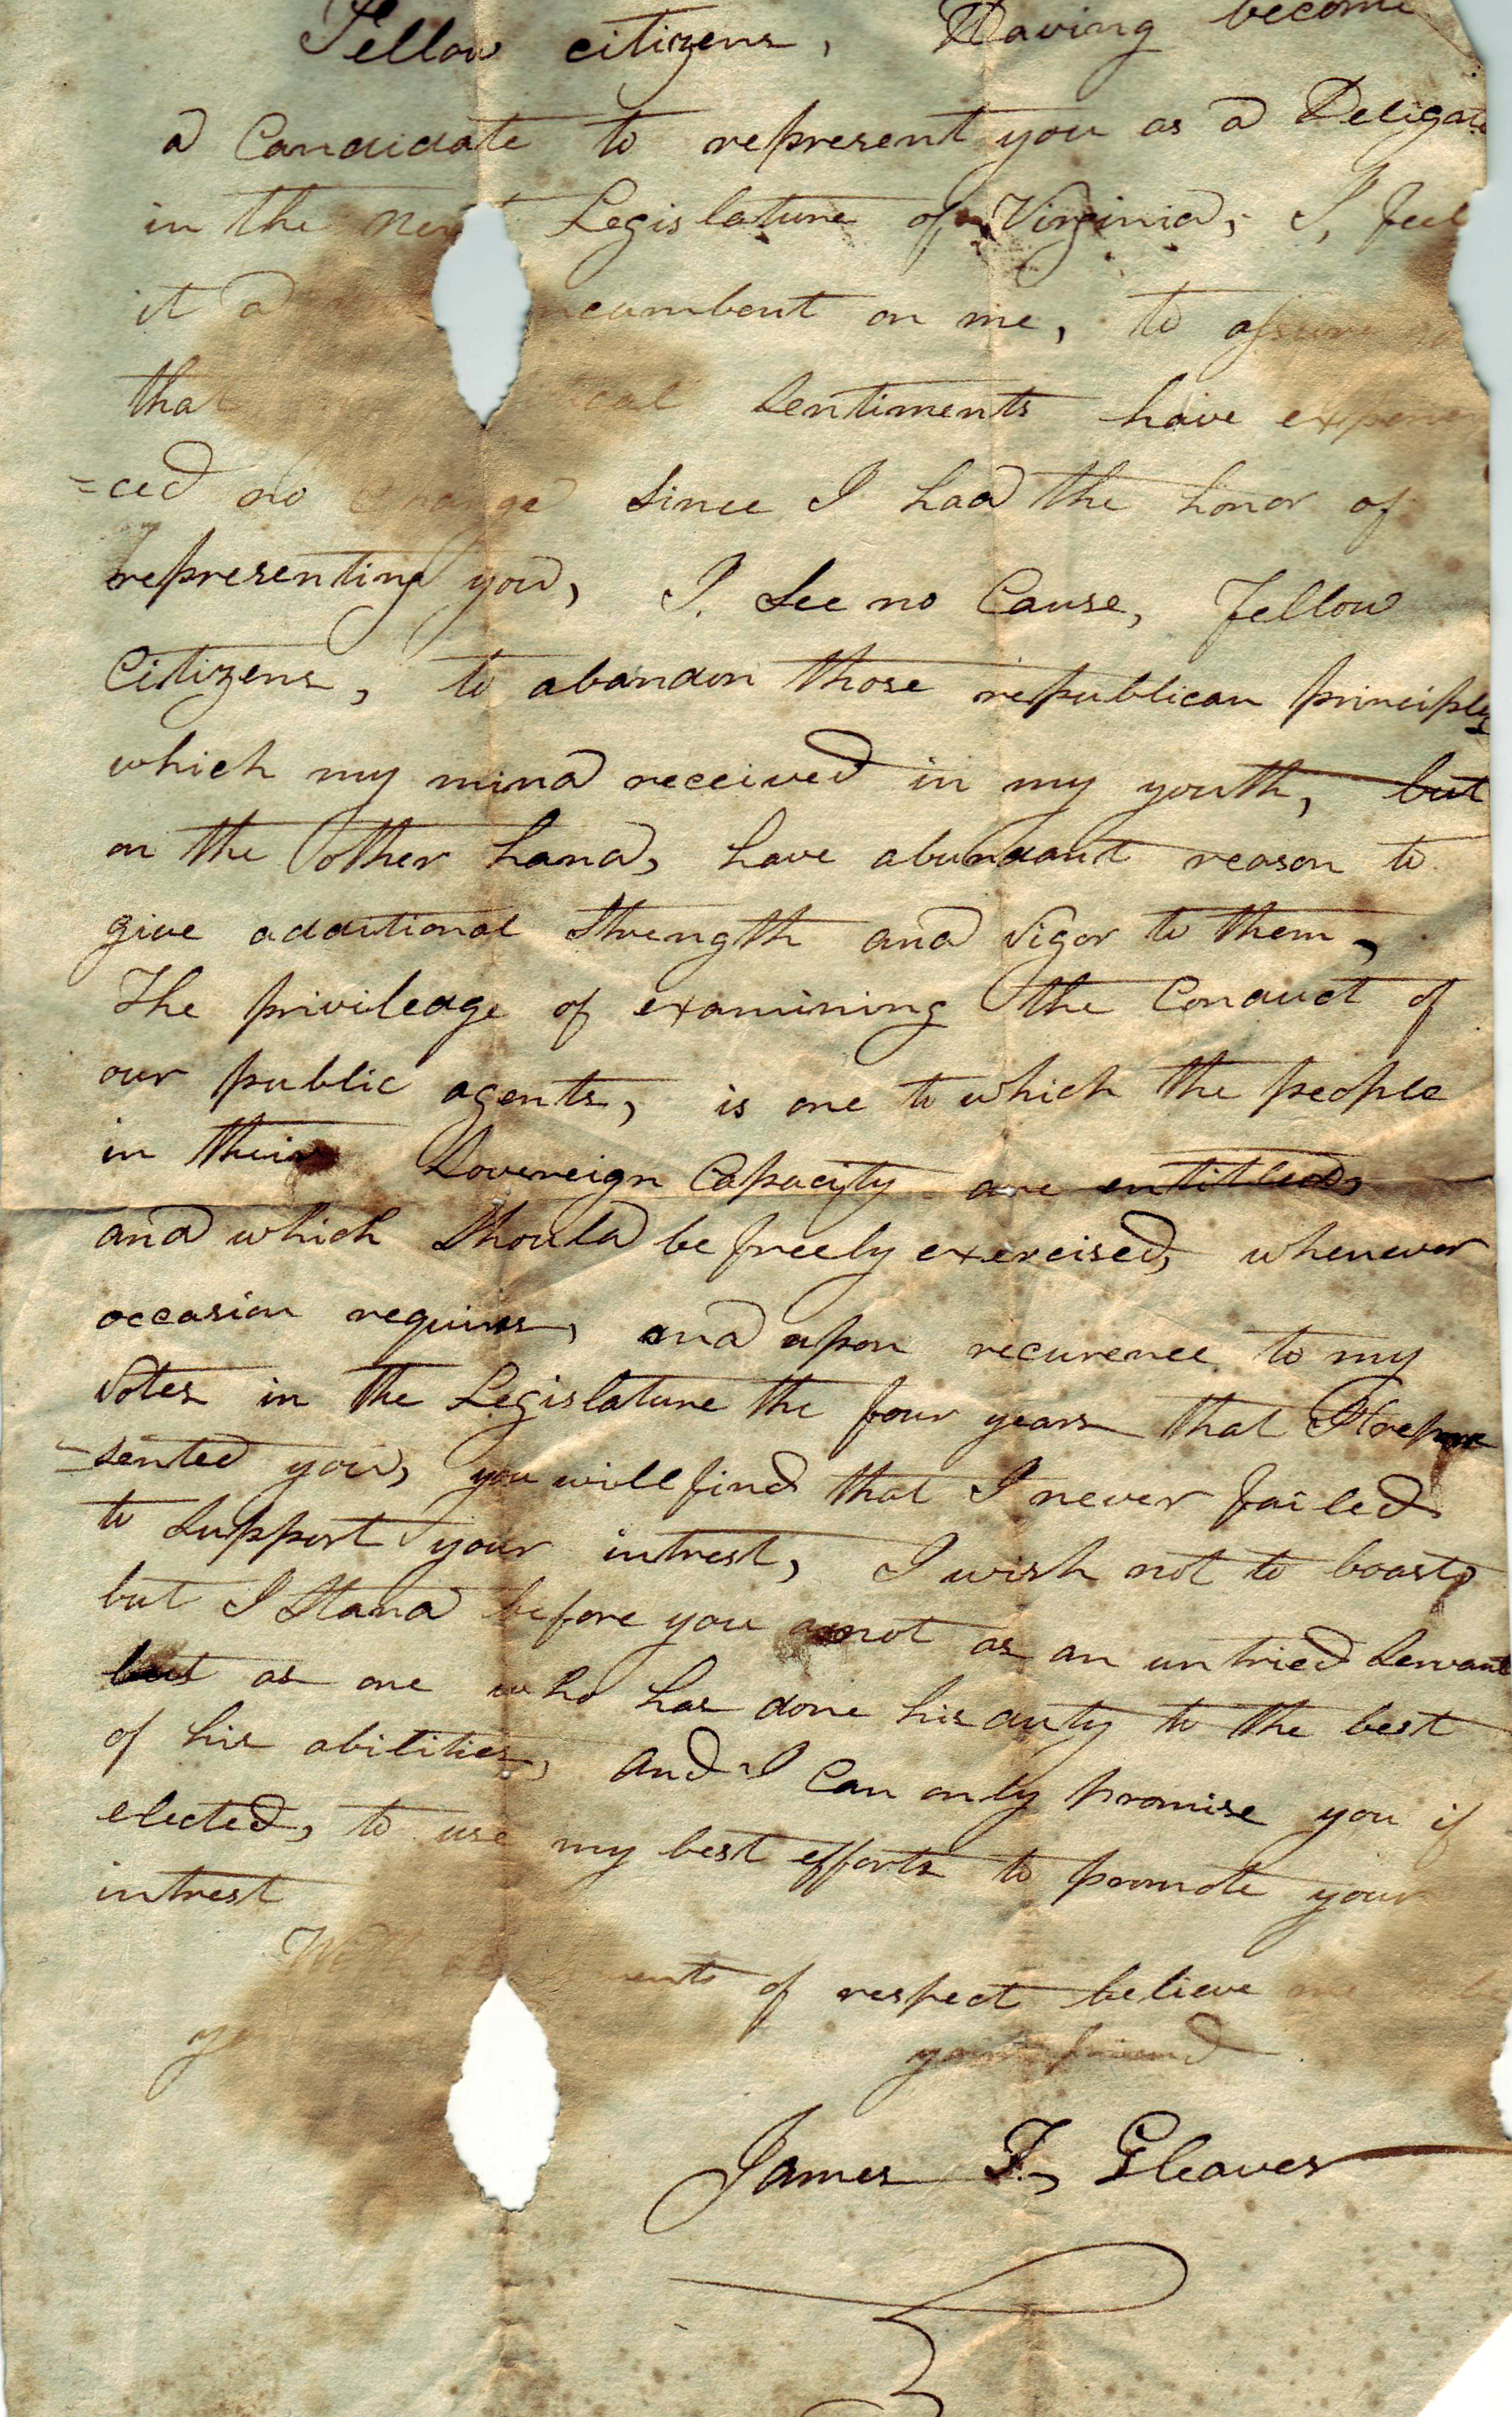 Fellow citizens, Having become
a Candidate to represent you as a Deligate
in the next Legislature of Virginia, I, feel
it a incumbent on me, to assure
that sentiments have experien
=ced no change since I had the honor of
representing you, I. See no Cause, fellow
Citizens, to abandon those republican principles
which my mind received in my youth, but
on the other hand, have abundant reason to
give additional strength and vigor to them,
The privileage of examining the Conduct of
our public agents, is one to which the people
in their Sovereign Capacity are entitled,
and which should be freely exercised, whenever
occasion requires, and upon recurence to my
votes in the Legislature the four years that I repre
=sented you, you will find that I never failed
to support your intrest, I wish not to boast,
but I stand before you not as an untried servant
but as one who has done his duty to the best
of his abilities, and I Can only promise you if
elected, to use my best efforts to promote your
intrest
With of respect believe me
your friend
James T., Gleaves